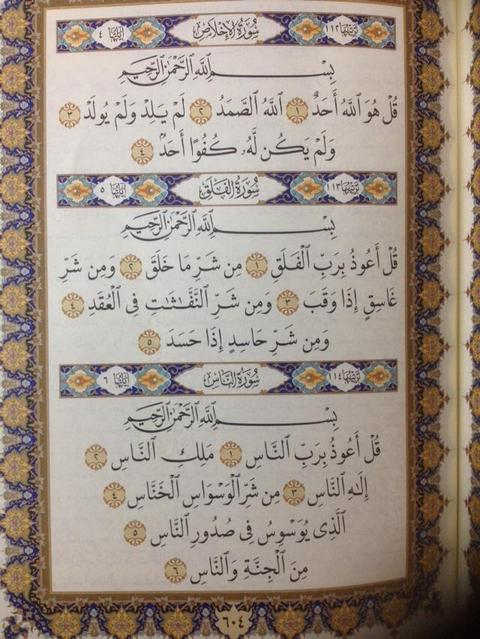 ترتيبها ١١٢ سورة الإخلاص آياتها ٤
بِسْمِ اللَّهِ الرَّحْمَٰنِ الرَّحِيمِ
قُلْ هُوَ اللَّهُ أَحَدٌ ١ اللَّهُ الصَّمَدُ ٢ لَمْ يَلِدْ وَلَمْ يُولَدْ ٣
وَلَمْ يَكُن لَّهُ كُفُوًا أَحَدٌ ٤
ترتيبها ١١٣ سورة الفلق آياتها ٥
بِسْمِ اللَّهِ الرَّحْمَٰنِ الرَّحِيمِ
قُلْ أَعُوذُ بِرَبِّ الْفَلَقِ ١ مِن شَرِّ مَا خَلَقَ ٢ وَمِن شَرِّ
غَاسِقٍ إِذَا وَقَبَ ٣ وَمِن شَرِّ النَّفَّٰثَٰتِ فِي الْعُقَدِ ٤
وَمِن شَرِّ حَاسِدٍ إِذَا حَسَدَ ٥
ترتيبها ١١٤ سورة الناس آياتها ٦
بِسْمِ اللَّهِ الرَّحْمَٰنِ الرَّحِيمِ
قُلْ أَعُوذُ بِرَبِّ النَّاسِ ١ مَلِكِ النَّاسِ ٢
إِلَٰهِ النَّاسِ ٣ مِن شَرِّ الْوَسْوَاسِ الْخَنَّاسِ ٤
الَّذِي يُوَسْوِسُ فِي صُدُورِ النَّاسِ ٥
مِنَ الْجِنَّةِ وَالنَّاسِ ٦
٦٠٤